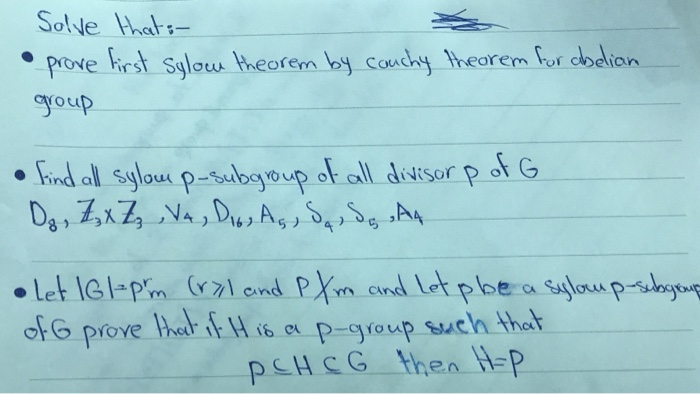 Solve that:-
• prove first sylow theorem by cauchy theorem for abelian
group
• find all sylow p-subgroup of all divisor p of G
D₈, Z₃×Z₃, V₄, D₁₆, A₅, S₄, S₅, A₄
• Let |G|=pʳm (r≥1 and P∤m and let p be a sylow p-subgroup
of G prove that if H is a p-group such that
p⊂H⊂G then H=p